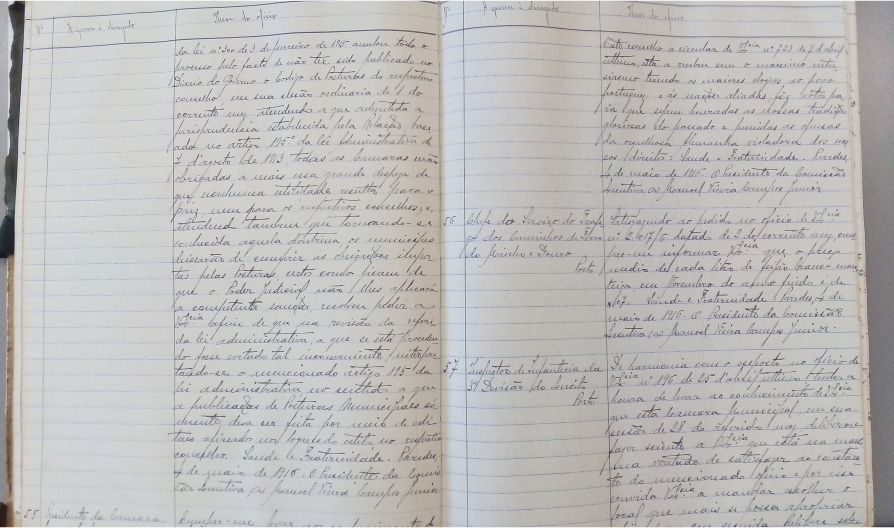 Nº A quem é dirigido Teor do oficio
da lei nº 300 de 3 de fevereiro de 1915 anulou todo o
processo pelo facto de não ter sido publicado no
Diario do Governo o Codigo de Posturas do respectivo
concelho, em sua sessão ordinaria de 1 do
corrente mez, atendendo a que adoptada a
jurisprudencia estabelecida pela Relação, basea
da no artigo 195º da lei Administrativa de
7 d'agosto de 1913, todas as camaras serão
obrigadas a mais essa grande despeza de
que nenhuma utilidade resulta para o
paiz nem para os respectivos concelhos, e
atendendo tambem que tornando-se
conhecida aquela doutrina os municipes
deixarão de cumprir as obrigações impos
tas pelas Posturas certos como ficam de
que o Poder Judicial não lhes aplicará
a competente sanção, resolveu pedir a
V. Excia afim de que na revisão da referi
da lei administrativa, a que se está proceden
do fosse evitado tal inconveniente, interpre
tando-se o mencionado artigo 195º da
lei administrativa no sentido a que
a publicação de Posturas Municipaes só
mente deva ser feita por meio de edi
taes afixados nos logares do estilo no respectivo
concelho. Saude e Fraternidade. Paredes,
4 de maio de 1916. O Presidente da Comis
são Executiva (a) Manoel Vieira Campos Junior
55 Presidente da Camara Cumpre-me levar ao
Nº A quem é dirigido Teor do oficio
Neste concelho a circular de V. Excia nº 723 de 7 d'abril
ultimo, esta a recebeu com o maximo entu
siasmo tecendo os maiores elogios ao povo
portuguez e ás nações aliadas fez votos pa
ra que sejam honradas as nossas tradições
gloriosas do passado e punidas as ofensas
da orgulhosa Alemanha violadora dos nos
sos direitos. Saude e Fraternidade. Paredes,
4 de maio de 1916. O Presidente da Comissão
Executiva (a) Manoel Vieira Campos Junior
56 Chefe do Serviço do Trafe
go dos Caminhos de Ferro
do Minho e Douro
Porto
Satisfazendo ao pedido no oficio de V. Excia
nº 2:617/6 datado de 2 do corrente mez, cum
pre-me informar V. Excia que o preço
medio de cada litro de feijão branco man
teiga em Novembro do ano findo é de
$07. Saude e Fraternidade. Paredes, 4 de
maio de 1916. O Presidente da Comissão
Executiva (a) Manoel Vieira Campos Junior.
57 Inspetor de Infanteria da
3ª Divisão do Exercito
Porto
De harmonia com o exposto no oficio de
V. Excia nº 196 de 25 d'abril ultimo tenho a
honra de levar ao conhecimento de V. Excia
que esta Camara Municipal em sua
sessão de 28 do referido mez deliberou
fazer sciente a V. Excia que está na melhor
sua vontade de satisfazer ao constante
do mencionado oficio e por isso
convida V. Excia a mandar escolher o
local que mais se possa apropriar